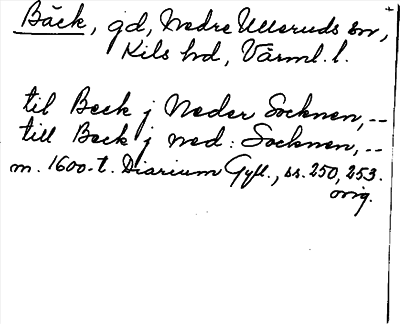 Bäck, gd, Nedre Ulleruds sn,
Kils hd, Värml. l.
til Beck j Neder Socknen, --
till Beck j ned: Socknen, --
m. 1600-t. Diarium Gyll., ss. 250, 253.
orig.